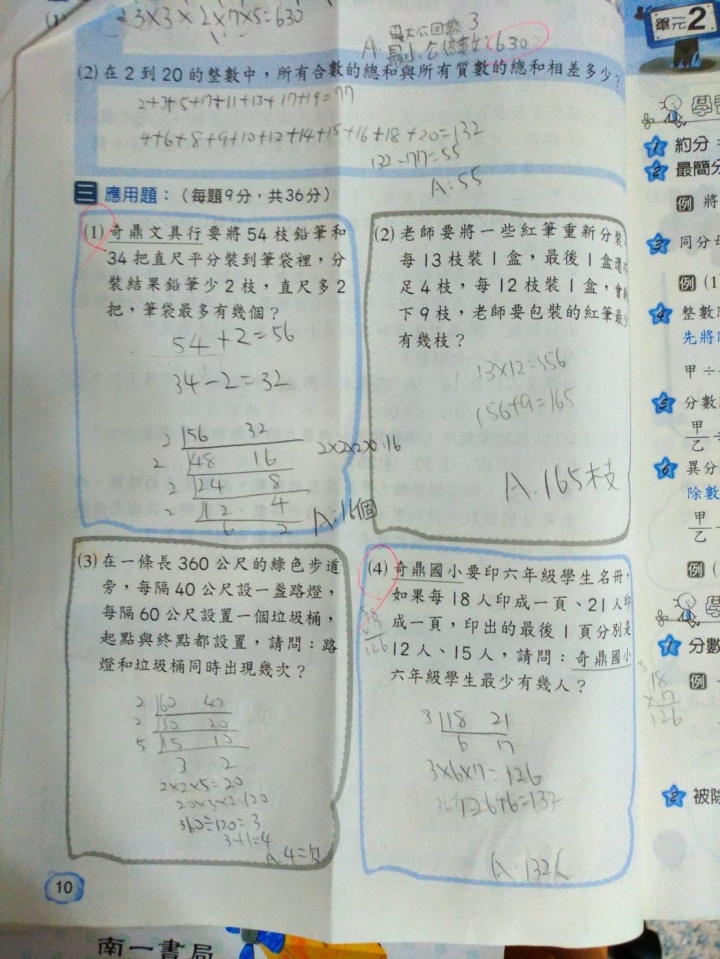 (1)
3×3×2×7×5=630
A:最大公因數 3
最小公倍數:630
(2)在2到20的整數中，所有合數的總和與所有質數的總和相差多少？
2+3+5+17+11+13+17+19=77
4+6+8+9+10+12+14+15+16+18+20=132
132-177=55
A:55
三 應用題：（每題9分，共36分）
(1)奇鼎文具行要將54枝鉛筆和
34把直尺平分裝到筆袋裡，分
裝結果鉛筆少2枝，直尺多2
把，筆袋最多有幾個？
54+2=56
34-2=32
2 56 32
2 48 16
2 24 8
2 12 4
6 2
2×2×2×2=16
A.16個
(2)老師要將一些紅筆重新分裝，
每13枝裝1盒，最後1盒還不
足4枝，每12枝裝1盒，會剩
下9枝，老師要包裝的紅筆最少
有幾枝？
13×12=156
156+9=165
A.165枝
(3)在一條長360公尺的綠色步道
旁，每隔40公尺設一盞路燈，
每隔60公尺設置一個垃圾桶，
起點與終點都設置，請問：路
燈和垃圾桶同時出現幾次？
2 60 40
2 30 20
5 15 10
3 2
2×2×5=20
20×3×2=120
360÷120=3
3+1=4
A.4次
(4)奇鼎國小要印六年級學生名冊，
如果每18人印成一頁、21人印
成一頁，印出的最後1頁分別是
12人、15人，請問：奇鼎國小
六年級學生最少有幾人？
126
3 18 21
6 17
3×6×7=126
126+6=132
A.132人
10
南一書局
單元2
學習
1 約分：
2 最簡分
例 將
3 同分母
例 (1
4 整數
先將
甲÷
5 分數
甲
乙
6 異分
除數
甲
乙
例 (
學
1 分數
例
18
×17
126
2 被除